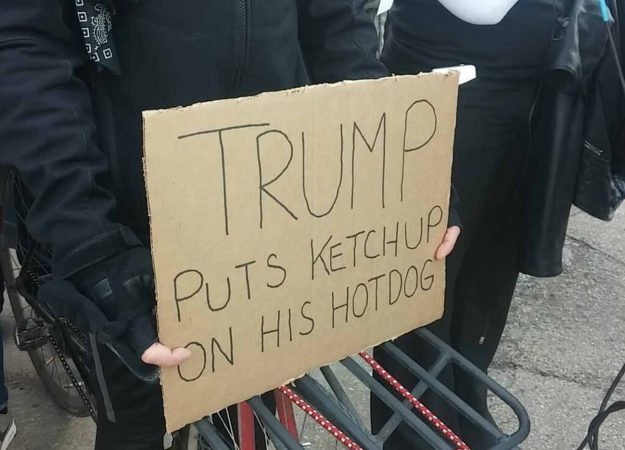 TRUMP
PUTS KETCHUP
ON HIS HOTDOG